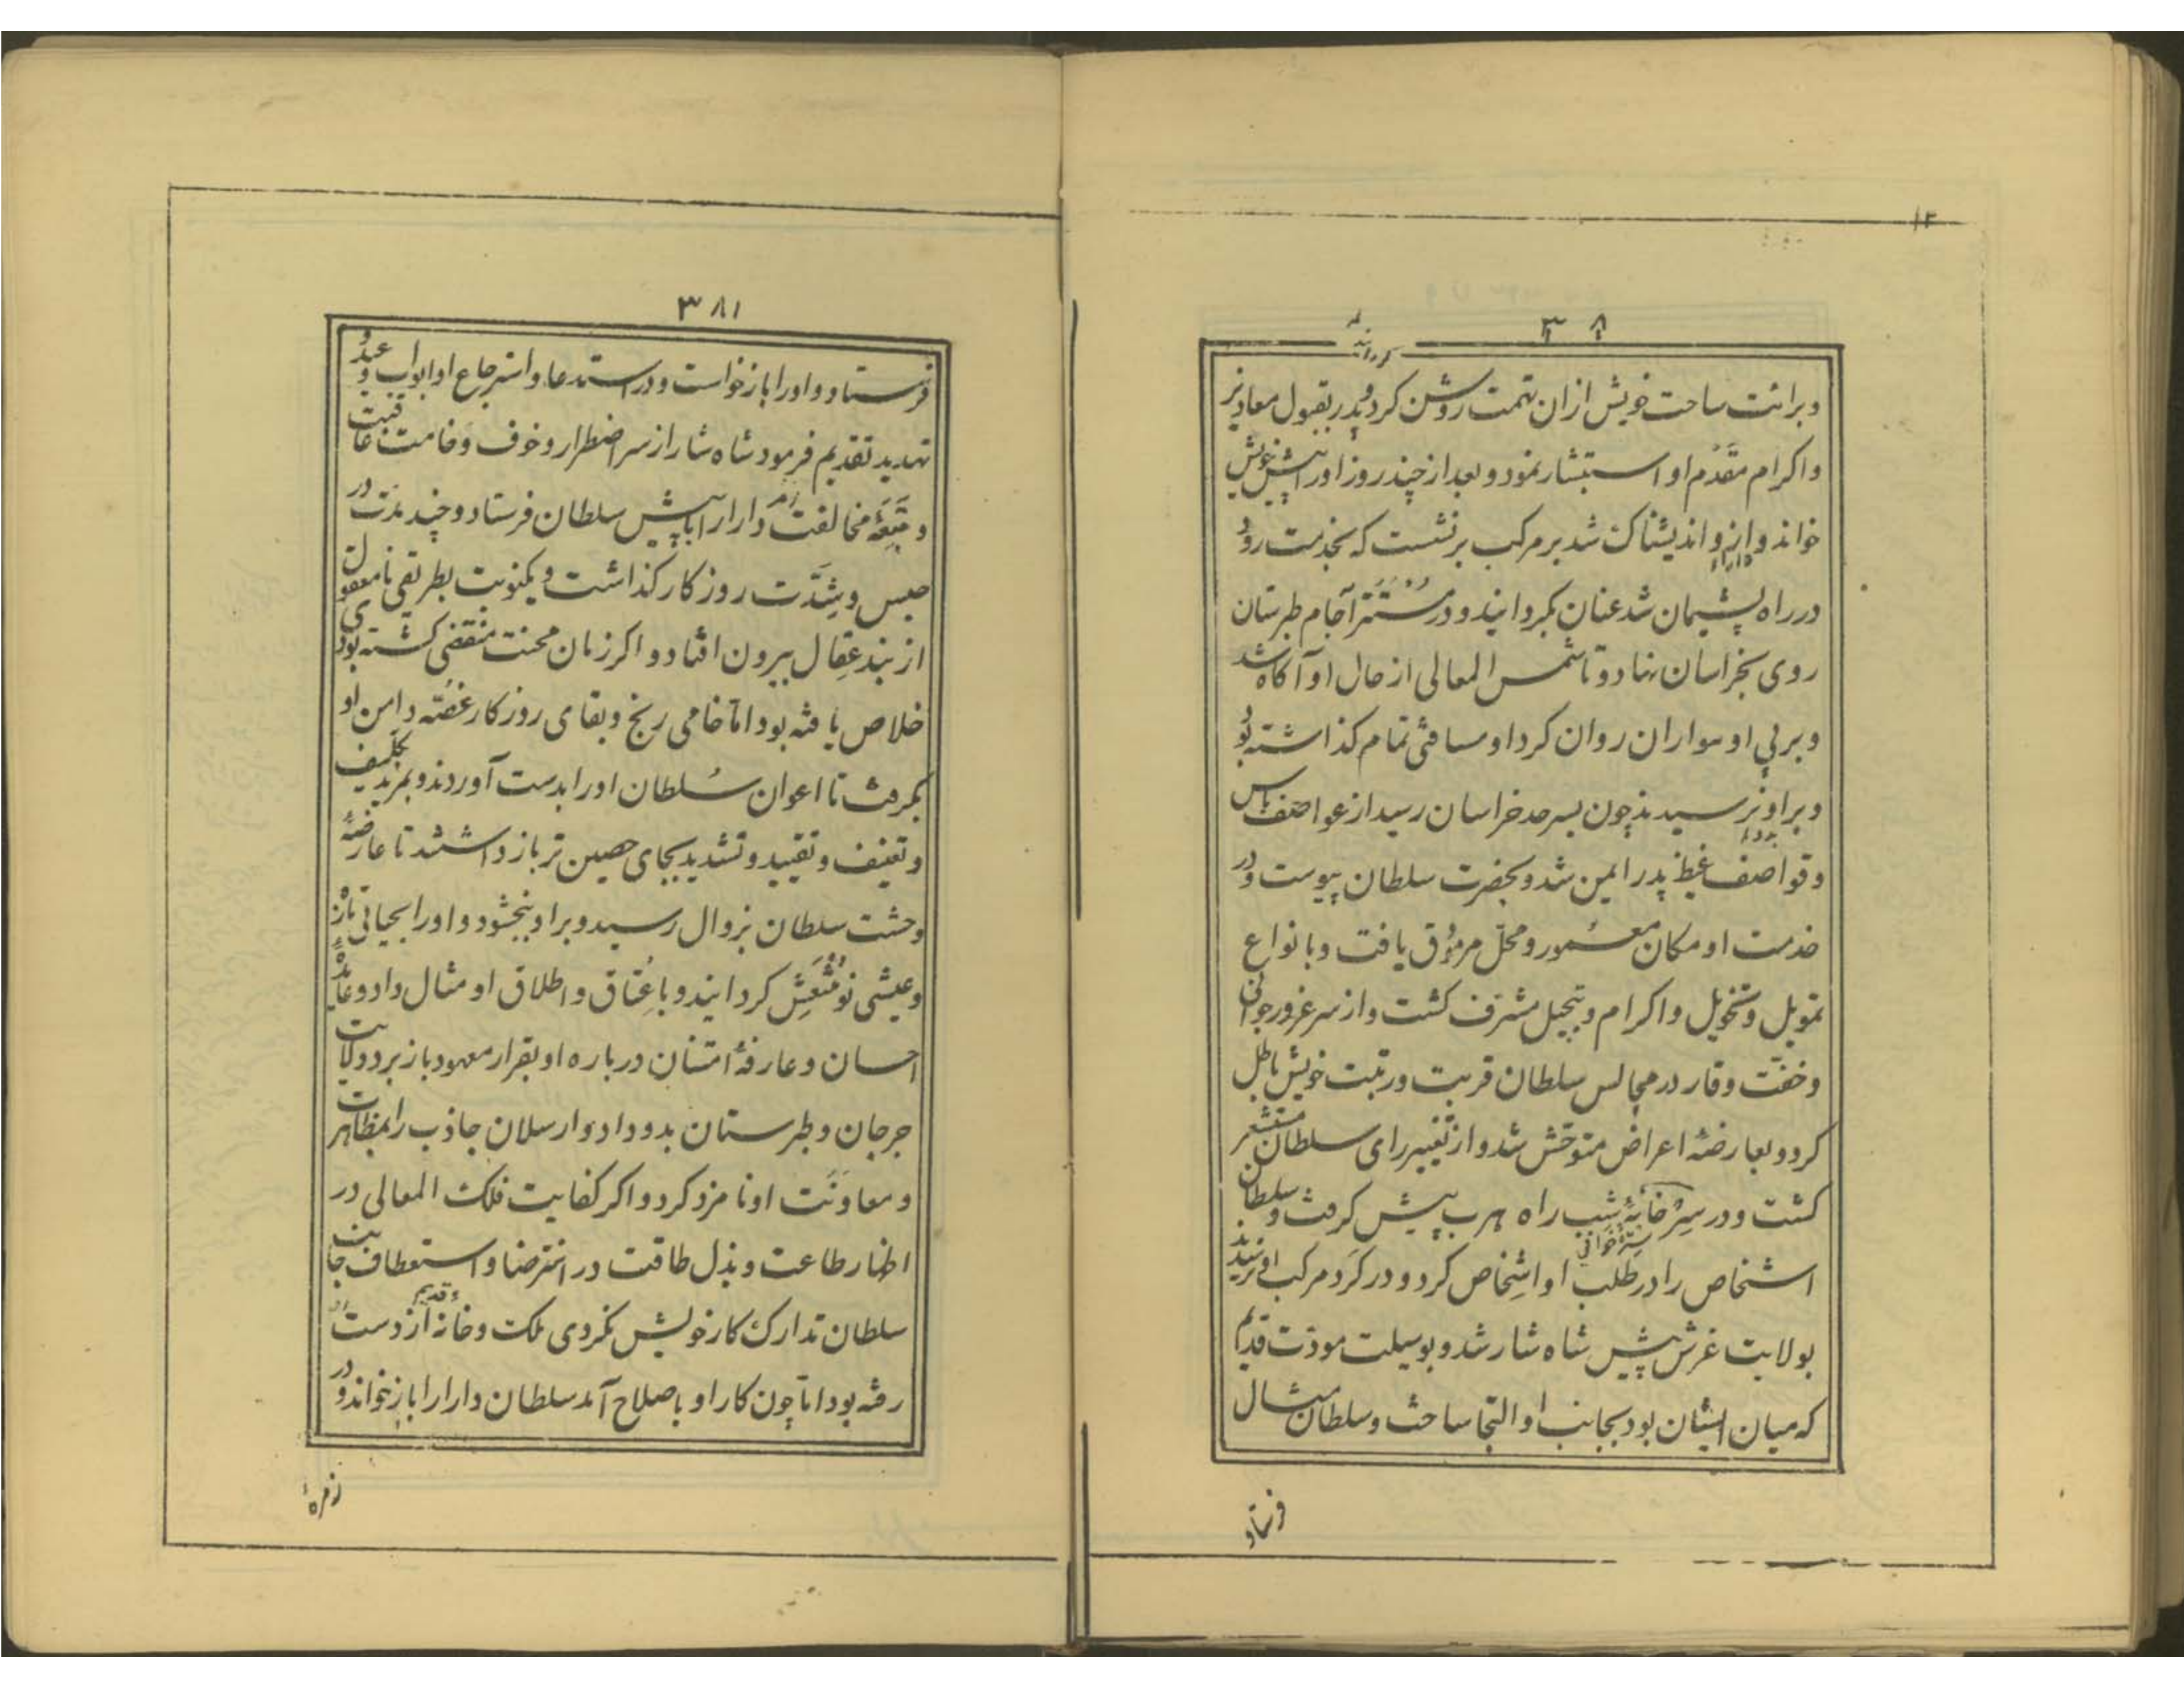 ۳۸۰
و برائت ساحت خویش از ان تهمت روشن کرد و پدر بقبول معاذیر
و اکرام مقدم او استبشار نمود و بعد از چند روز او را پیش خویش
خواند و از او اندیشناک شد بر مرکب برنشست که بخدمت رود
در راه پشیمان شد عنان بگردانید و در مستتر آجام طبرستان
روی بخراسان نهاد و تا شمس المعالی از حال او آگاه شد
و بر پی او سواران روان کرد او مسافتی تمام گذاشته بود
و بر او نرسیدند چون بسرحد خراسان رسید از عواصف باس
و قواصف غیظ پدر ایمن شد و بحضرت سلطان پیوست و در
خدمت او مکان معمور و محل مرموق یافت و بانواع
تمویل و تخویل و اکرام و تبجیل مشرف گشت و از سر غرور جوانی
و خفت وقار در مجالس سلطان قربت و رتبت خویش باطل
کرد و بعارضهٔ اعراض متوحش شد و از تغییر رای سلطان مستشعر
گشت و در ستر خانهٔ شب راه هرب پیش گرفت و سلطان
اشخاص را در طلب او اشخاص کرد و در گرد مرکب او نرسیدند
بولایت غرش پیش شاه شار شد و بوسیلت مودت قدیم
که میان ایشان بود بجانب او التجا ساخت و سلطان مثال
فرستاد
۳۸۱
فرستاد و او را بازخواست و در استدعا و استرجاع او ابواب وعید و
تهدید تقدیم فرمود شاه شار از سر اضطرار و خوف وخامت عاقبت
و تبعهٔ مخالفت دارا را بپیش سلطان فرستاد و چند مدت در
حبس و شدت روزگار گذاشت و یکنوبت بطریقی نامعقول
از بند عقال بیرون افتاد و اگر زمان محنت منقضی گشته بودی
خلاص یافته بود اما خامی رنج و بقای روزگار غصه دامن او
بگرفت تا اعوان سلطان او را بدست آوردند و بمزید تکلیف
و تعنیف و تقیید و تشدید بجای حصین تر باز داشتند تا عارضهٔ
وحشت سلطان بزوال رسید و بر او ببخشود و او را بحیاتی تازه
و عیشی نو منتعش گردانید و باعتاق و اطلاق او مثال داد و عایدهٔ
احسان و عارفهٔ امتنان درباره او بقرار معهود باز برد و ولایت
جرجان و طبرستان بدو داد و ارسلان جاذب را بمظاهرت
و معاونت او نامزد کرد و اگر کفایت فلک المعالی در
اظهار طاعت و بذل طاقت در استرضا و استعطاف جانب
سلطان تدارک کار خویش نکردی ملک و خانه قدیم از دست او
رفته بود اما چون کار او باصلاح آمد سلطان دارا را باز خواند و در
زمرهٔ